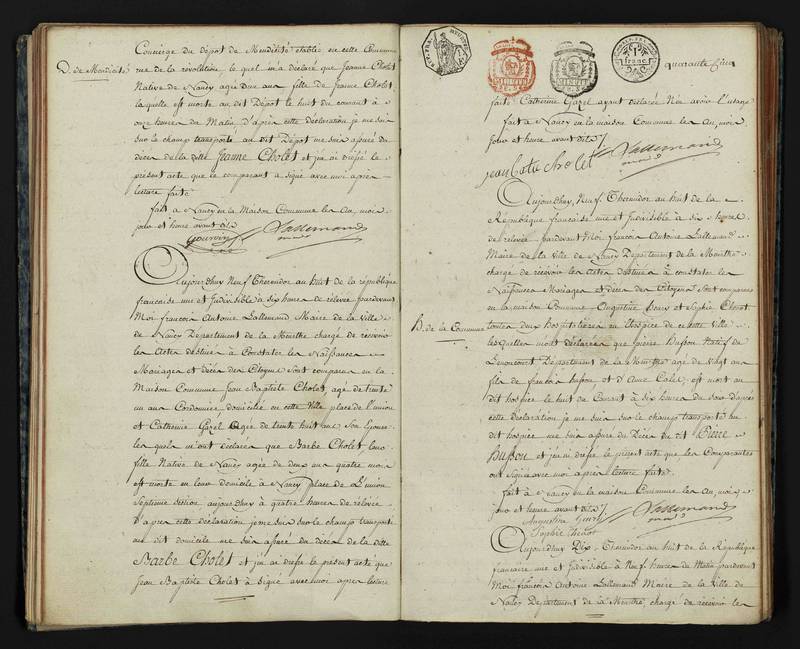 Concierge du Dépôt de Mendicité établie en cette Commune
D. de Mendicité
me de la révolution, le quel m'a déclaré que Jeanne Cholet
Native de Nancy agée d'un an fille de france Cholet,
laquelle est morte au dit Dépôt le huit du courant à
onze heures du Matin, d'après cette déclaration je me suis
sur le champ transporté au dit Dépôt me suis assuré du
décès de la ditte Jeanne Cholet et j'en ai dréssé le
présent acte que le comparant a signé avec moi après
lecture faite
fait à Nancy en la Maison Commune les An, mois
jour et heure avant dits
Gourvin Lallemand
maire
Aujourdhuy Neuf Thermidor an huit de la république
francaise une et Indivisible à six heures de relevée pardevant
Moi françois Antoine Lallemand Maire de la Ville
de Nancy Département de la Meurthe chargé de récévoir
les Actes destinés à Constater les Naissances
Mariages et décès des Citoyens sont comparus en la
Maison Commune Jean Baptiste Cholet, agé de trente
un ans Cordonnier domicilié en cette Ville place de l'union
et Catherine Gazel Agée de trente huit ans Son Epouse
les quels m'ont déclarés que Barbe Cholet, leur
fille Native de Nancy agée de deux ans quatre mois
est morte en leur domicile à Nancy place de L'union
Septieme section aujourdhuy à quatre heures de relevée
D'après cette déclaration je me suis sur le champ transporté
au dit domicile me suis assuré du décès de la ditte
Barbe Cholet et j'en ai dressé le présent acte que
Jean Baptiste Cholet à Signé avec moi après lecture
1 franc
quarante deux
faite Catherine Gazel ayant déclarée N'en avoir l'usage
fait à Nancy en la maison Commune les An, mois
Jour et heure avant dits
jean Batis Cholet Lallemand
maire
Aujourdhuy, Neuf Thermidor an huit de la
République francaise une et Indivisible à six heures
de relevée pardevant Moi françois Antoine Lallemand
Maire de la Ville de Nancy Département de la Meurthe
chargé de récévoir les Actes destinés à constater les
Naissances Mariages et décès des Citoyens Sont comparues
en la maison Commune Augustine et Sophie
H. de la Commune
toutes deux hospitalières en l'hospice de cette Ville
lesquelles m'ont déclarées que pierre Husson Natif de
Lenoncourt Département de la Meurthe agé de vingt ans
fils de francois husson et d'Anne Calet, est mort au
dit hospice le huit du Courant à six heures du soir d'après
cette déclaration je me suis sur le champ transporté au
dit hospice me suis assuré du Décès du dit Pierre
Husson et j'en ai dressé le présent acte que les Comparantes
ont signé avec moi après lecture faite.
fait à Nancy en la maison Commune les An, mois
jour et heure avant dits
Augustine Lallemand
Sophie maire
Aujourdhuy Dix Thermidor an huit de la République
francaise une et Indivisible à Neuf heures du Matin pardevant
Moi françois Antoine Lallemand Maire de la Ville de
Nancy Département de la Meurthe, chargé de récévoir les